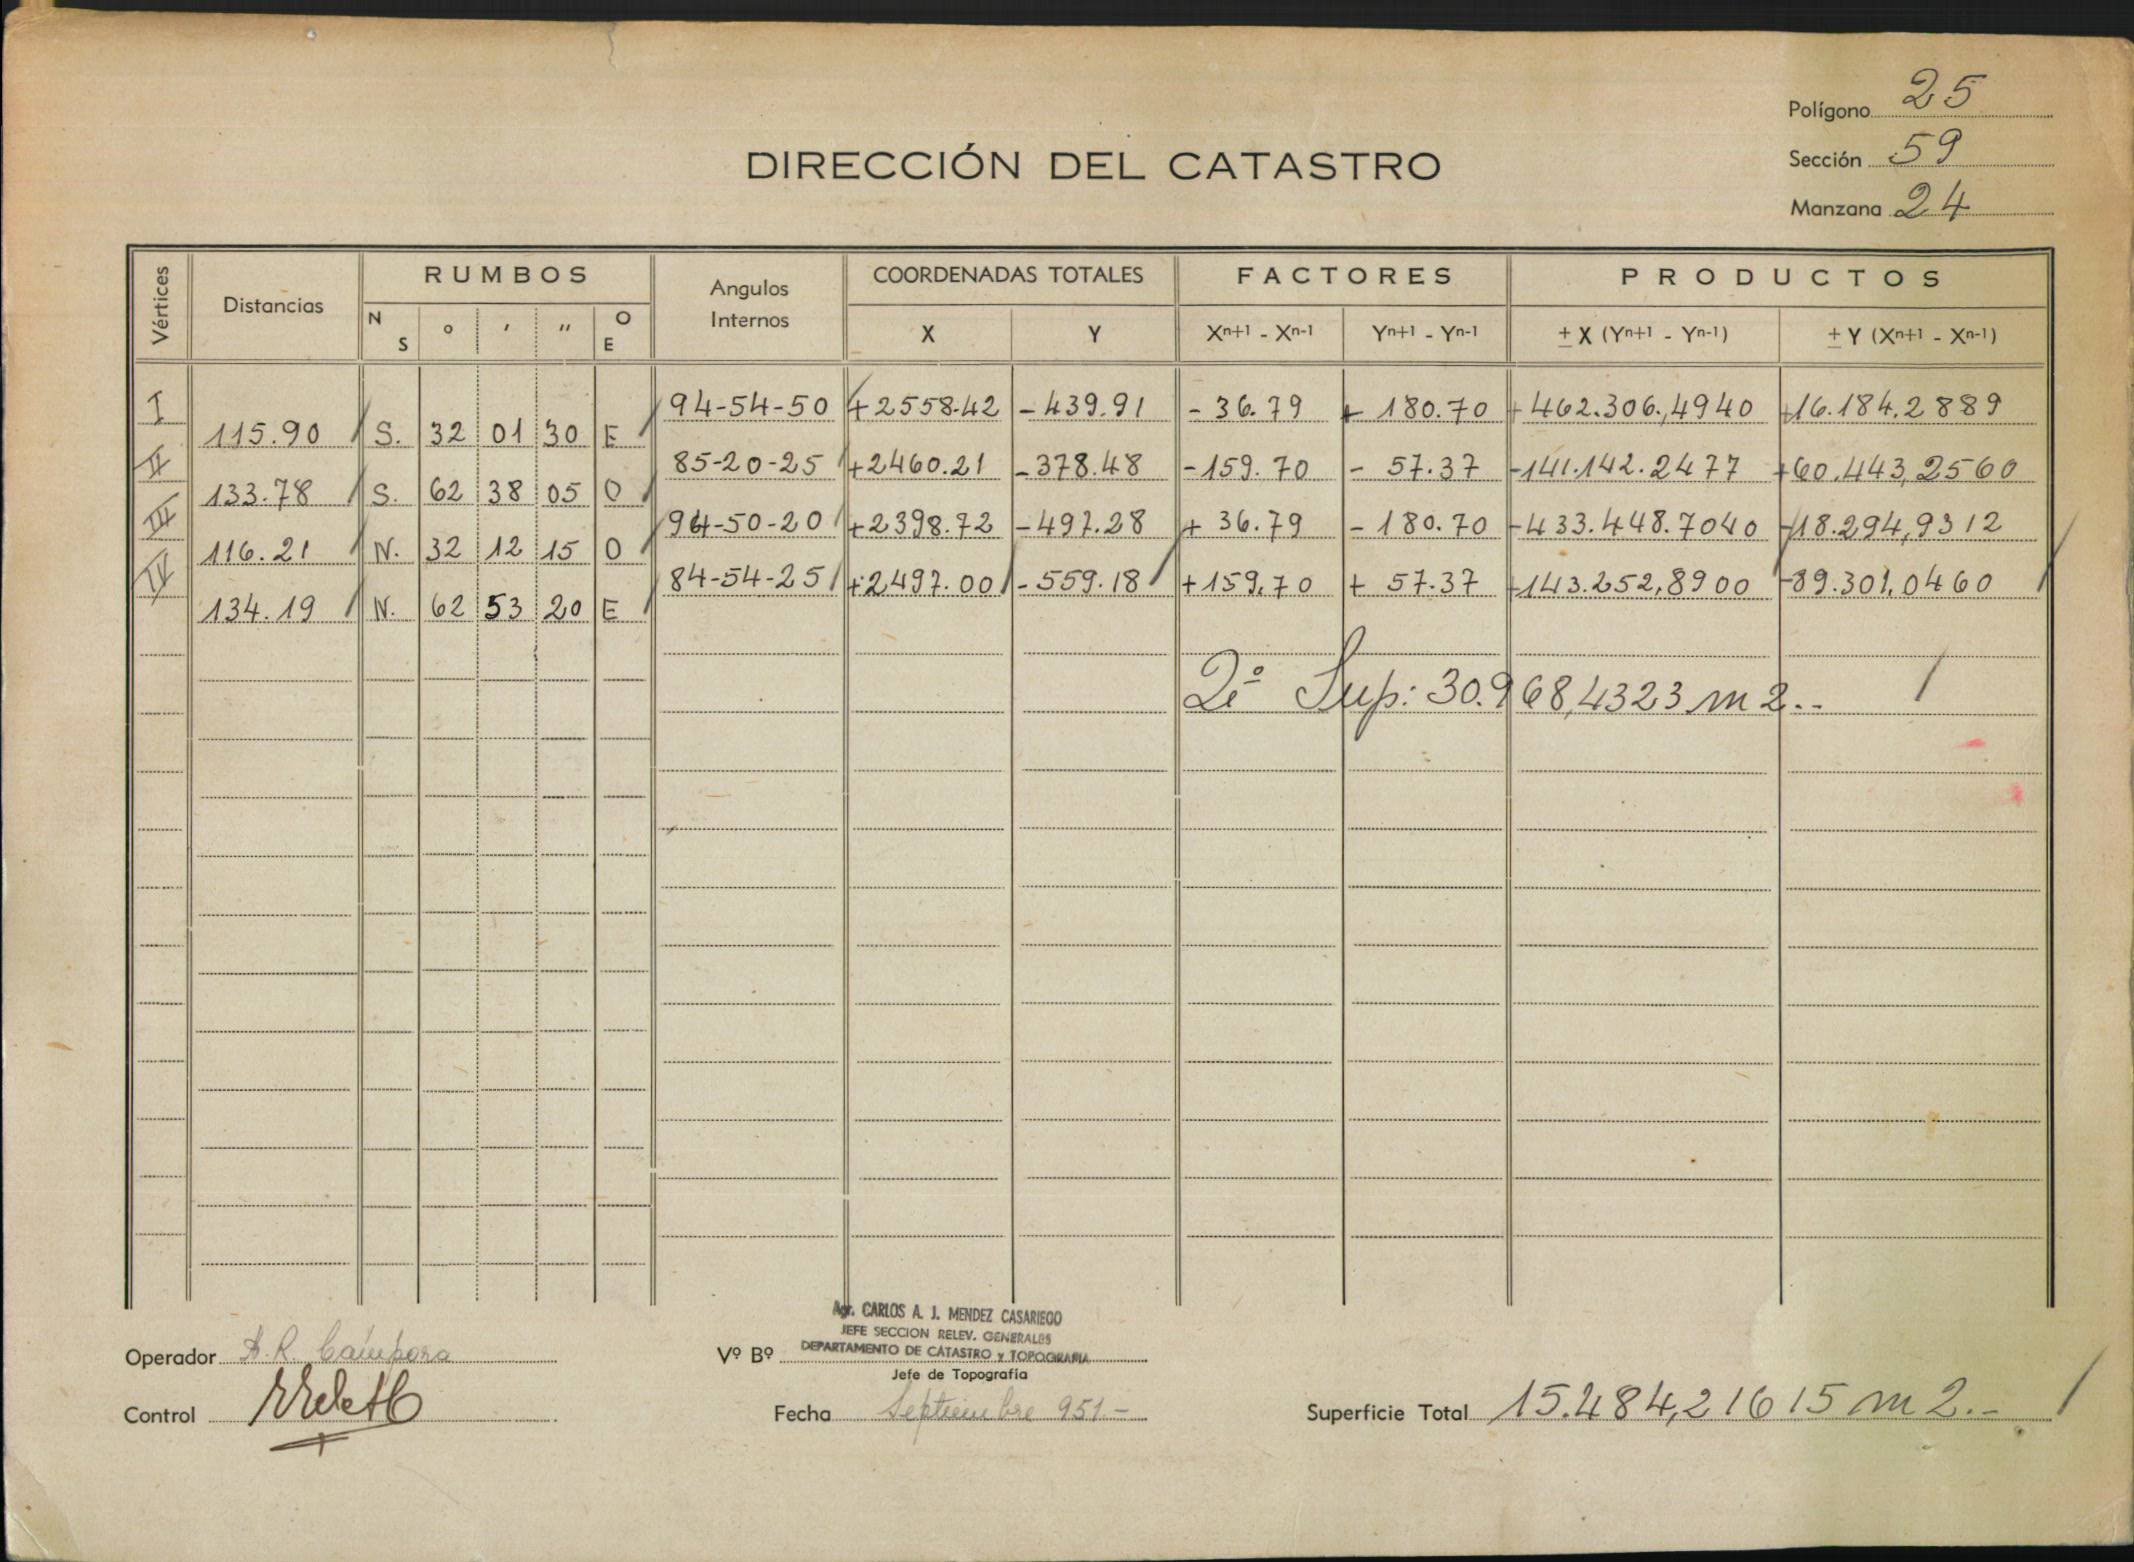 Polígono 25
DIRECCIÓN DEL CATASTRO
Sección 59
Manzana 24
Vértices Distancias RUMBOS Angulos Internos COORDENADAS TOTALES FACTORES PRODUCTOS
N S ° ' " O E X Y Xn+1 - Xn-1 Yn+1 - Yn-1 ± X (Yn+1 - Yn-1) ± Y (Xn+1 - Xn-1)
I 94-54-50 +2558.42 -439.91 -36.79 + 180.70 +462.306,4940 +16.184.2889
115.90 S. 32 01 30 E
II 85-20-25 +2460.21 -378.48 -159.70 - 57.37 -141.142.2477 +60.443,2560
133.78 S. 62 38 05 O
III 94-50-20 +2398.72 -497.28 + 36.79 - 180.70 -433.448.7040 -18.294,9312
116.21 N. 32 12 15 O
IV 84-54-25 +2497.00 -559.18 +159.70 + 57.37 +143.252,8900 -89.301,0460
134.19 N. 62 53 20 E
2ª Sup: 30.968,4323 m2.-
Agr. CARLOS A. J. MENDEZ CASARIEGO
JEFE SECCION RELEV. GENERALES
DEPARTAMENTO DE CATASTRO y TOPOGRAFIA
Operador A. R. Cámpora Vº Bº
Jefe de Topografía
Control Fecha Septiembre 951- Superficie Total 15.484,21615 m2.-